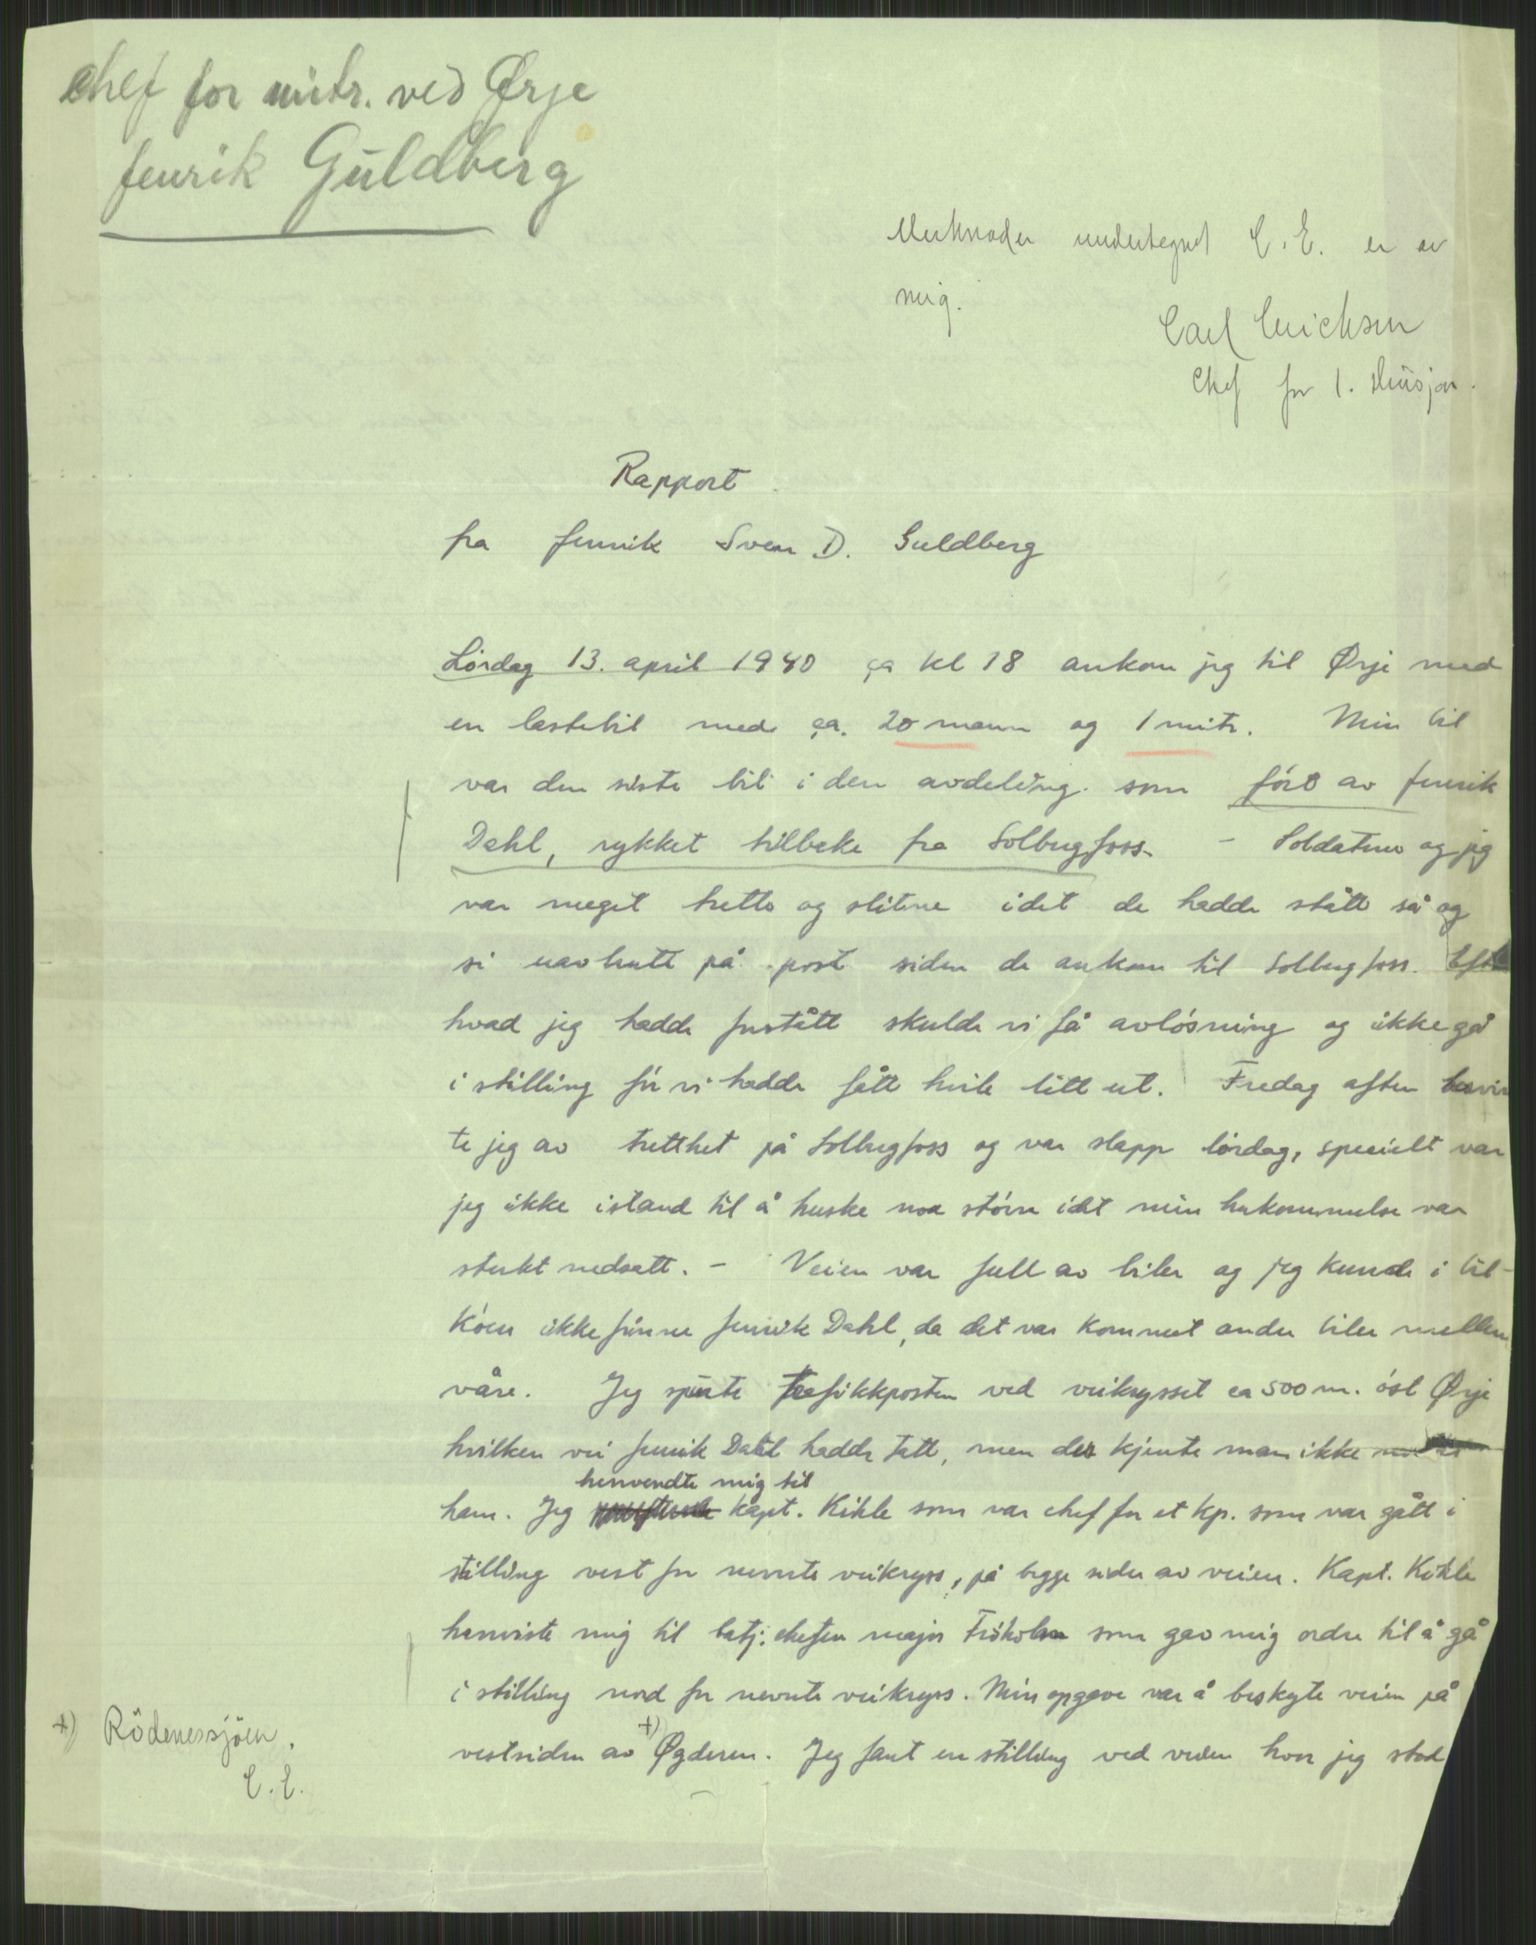 Chef for mitr. ved Ørje
fenrik Guldberg
Merknader undertegnet C. E. er av
mig.
Carl Erichsen
Chef for 1. divisjon.
Rapport
fra fenrik Sven D. Guldberg
Lördag 13. april 1940 ca kl 18 ankom jeg til Ørje med
en lastebil med ca. 20 mann og 1 mitr. Min bil
var den siste bil i den avdeling som förd av fenrik
Dahl, rykket tilbake fra Solbergfoss. - Soldatene og jeg
var meget trette og slitne idet de hadde stått så og
si uavbrutt på post siden de ankom til Solbergfoss. Eft
hvad jeg hadde forstått skulde vi få avlösning og ikke gå
i stilling för vi hadde fått hvile litt ut. Fredag aften besvim
te jeg av tretthet på Solbergfoss og var slapp lördag, specielt var
jeg ikke istand til å huske noe större idet min hukommelse var
sterkt nedsatt. - Veien var full av biler og jeg kunde i bil-
köen ikke finne fenrik Dahl, da det var kommet andre biler mellem
våre. Jeg spurte trafikkposten ved veikrysset ca 500 m. öst Ørje
hvilken vei fenrik Dahl hadde tatt, men der kjente man ikke
henvendte mig til
ham. Jeg kapt. Kihle som var chef for et kp. som var gått i
stilling vest for nevnte veikryss, på begge sider av veien. Kapt. Kihle
henviste mig til batj. chefen major Fröholm som gav mig ordre til å gå
i stilling nord for nevnte veikryss. Min opgave var å beskyte veien på
vestsiden av +) Øgderen. Jeg fant en stilling ved veien hvor jeg stod
+) Rödenessjöen.
C. E.